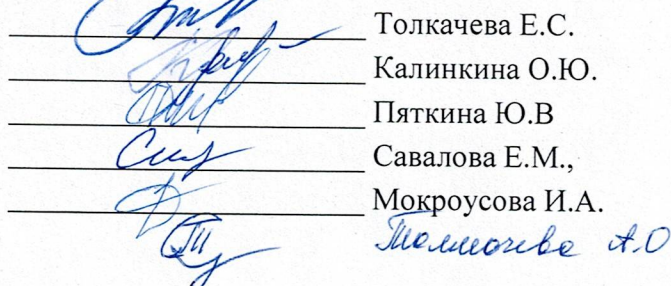 Толкачева Е.С.
Калинкина О.Ю.
Пяткина Ю.В
Савалова Е.М.,
Мокроусова И.А.
Толмачева А.О